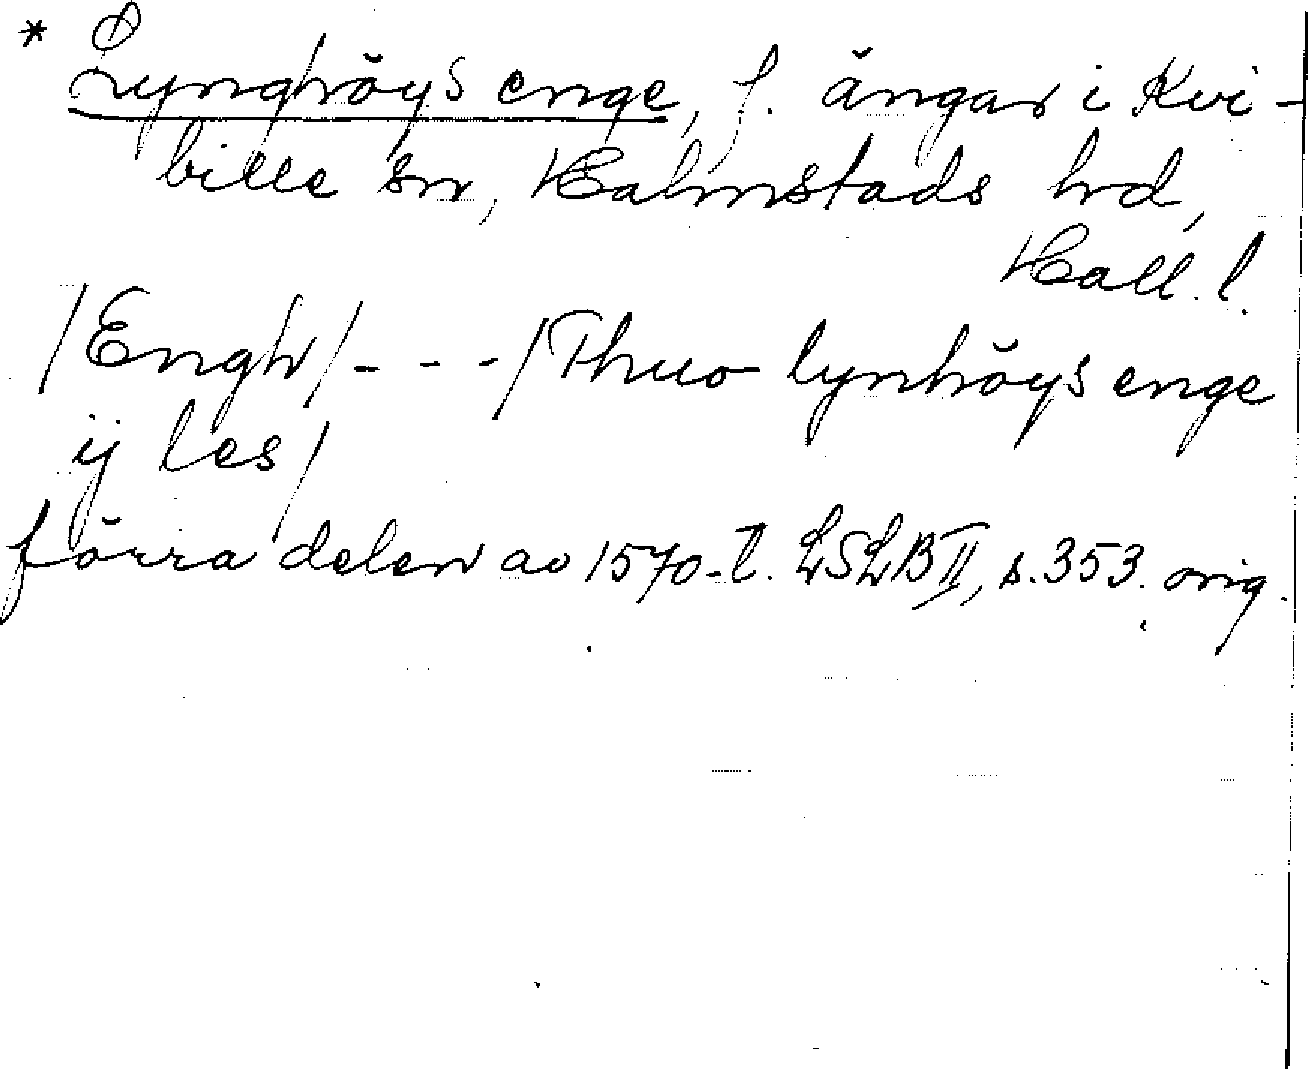 * Lynghöys enge, f. ängar i Kvi-
bille sn, Halmstads hd,
Hall. l.
/Engh/- - -/Thuo lynhöys enge
ij les/
förra delen av 1570-t. LSLB II, s. 353. orig.